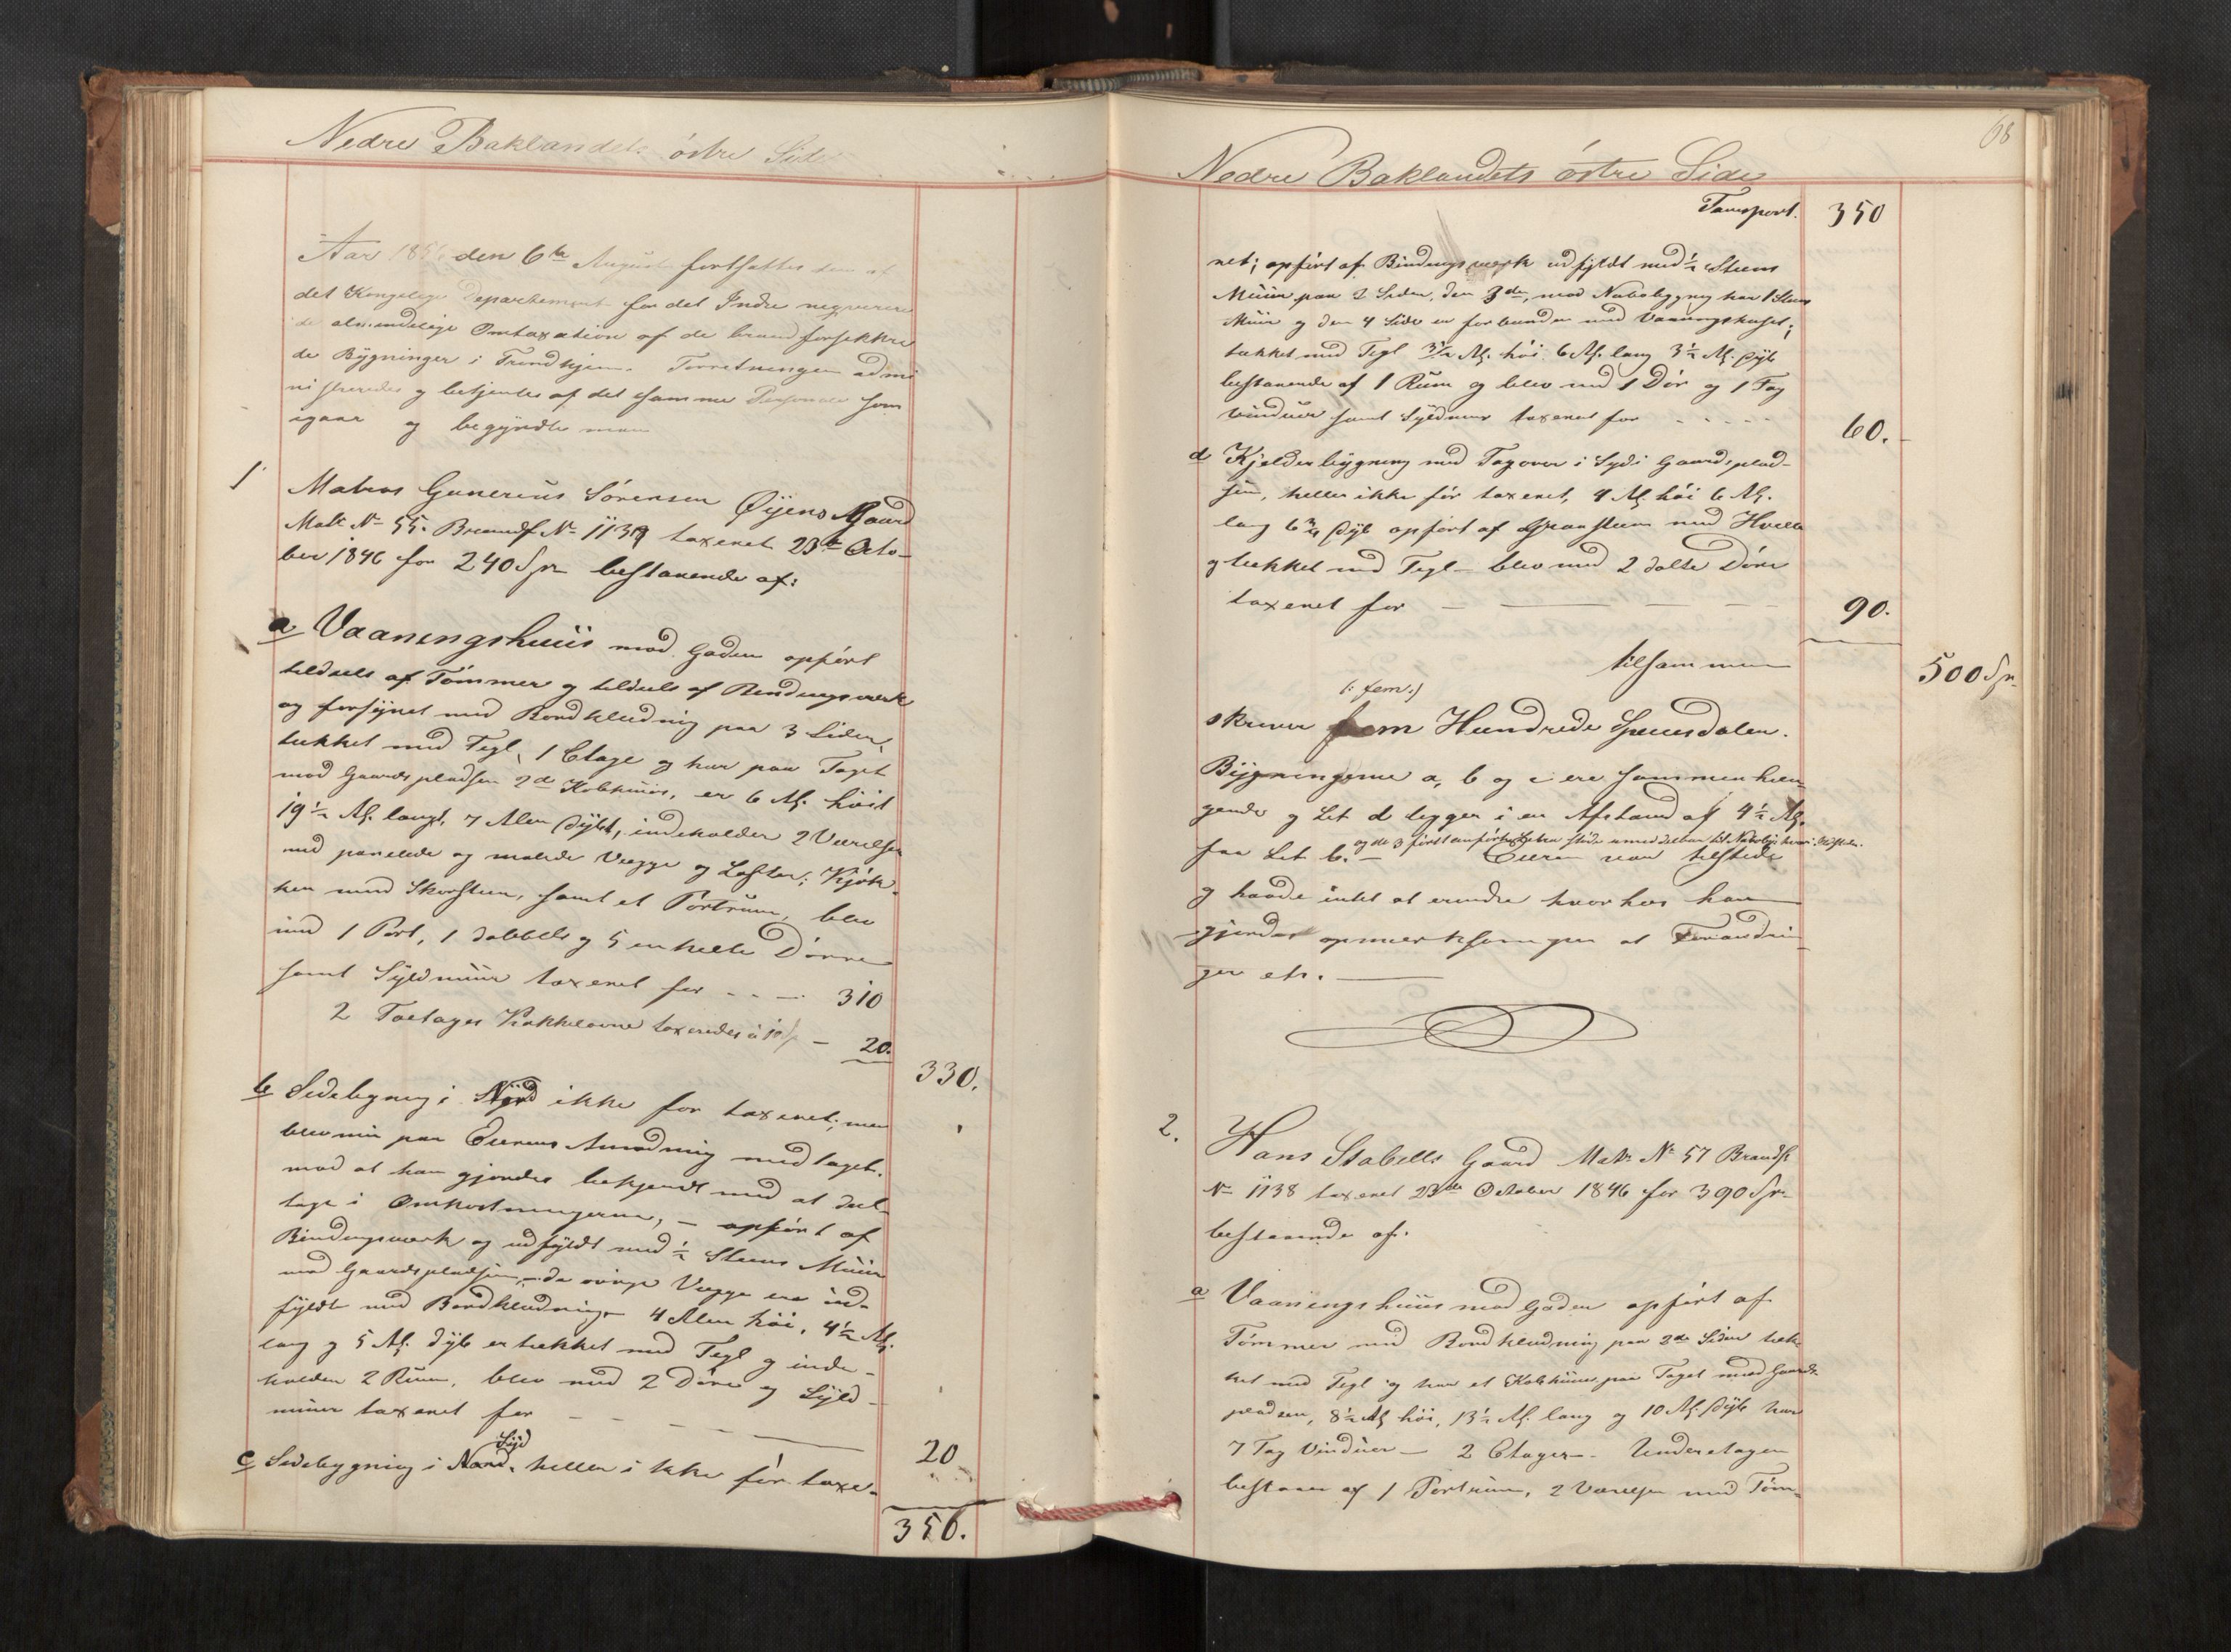 Nedre Baklandets östre Side
Aar 185 den 6te August fortsattes den af
det Kongelige Departement for det Indre reqvirere
de almindelige Omtaxation af de brandforsikkre
de Bÿgninger i Trondhjem. Forretningen admi
nistreredes og betjentes af det samme Personale som
igaar og begÿndte man
1 Matros Gunerius Sörensen Øÿens Gaard
Matr No 55. Brandf No 1139 taxeret 23de Octo-
ber 1846 for 240 Spr bestaaende af:
a Vaaningshuus mod Gaden opfört
tildeels af Tömmer og tildeels af Bindingsverk
og forsÿnet med Bordklædning paa 3 Sider,
tækket med Tegl, 1 Etage og har paa Taget
mod Gaardspladsen 2de Kobhuus, er 6 Al. höit
19 1/2 Al. langt, 7 Alen dÿbt, indeholder 2 Værelser
med panelede og malede Vægge og Lofter; Kjök-
ken med Skorsteen, samt et Portrum, blev
med 1 Port, 1 dobbelt og 5 enkelte Dörre
samt Sÿldmuur taxeret for - - - 310
2 Toetages Kakkelovne taxeredes à 10 Sp - 20.
330.
b Sidebygning i Nord ikke för taxeret, men
blev nu paa Eierens Anmodning medtaget.
mod at han gjordes bekjendt med at del-
tage i Omkostningerne, - opfört af
Bindingsverk og udfÿldt med 1/2 Steens Muur
mod Gaardspladsen, - de övrige Vægge ere ud-
fÿldt med Bordklædning 4 Alen höi, 4 1/2 Al.
lang og 5 Al. dÿb er tækket med Tegl og inde-
holder 2 Rum, blev med 2 Döre og Sÿld-
muur taxeret for - - - - 20
c Sidebygning i Nord. Sÿd heller ikke för taxe-
350.
68
Nedre Baklandets östre Side
Transport. 350
ret; opfört af Bindingsverk udfÿldt med 1/2 Steens
Muur paa 2 Sider, den 3de, mod Nabobygng har 1 Steens
Muur og den 4 Side er forbunden med Vaaningshuset;
tækket med Tegl 3 1/2 Al. höi 6 Al. lang 3 1/2 Al. dÿb
bestaaende af 1 Rum og blev med 1 Dör og 1 Fag
Vinduer samt Sÿldmur taxeret for - - - - - 60.
d Kjelderbÿgning med Tag over i Sÿd i Gaardsplad-
sen, heller ikke för taxeret, 4 Al. höi 6 Al.
lang 6 3/4 dÿb opfört af Graasteen med Hvælv
og tækket med Tegl - blev med 2 Döre
taxeret for - - - - 90.
tilsammen 500 Spr.
(: fem :)
skriver fem Hundrede Speciesdaler.
Bÿgningerne a, b og c ere sammenhæn-
gende og Lit d ligger i en Afstand af 4 1/2 Al.
og de 3 först anförte Litra stöde umiddelbar til
fra Lit b. - Eieren var tilstede
og havde intet at erindre hvorhos han
gjordes opmerksom paa at Forandrin-
ger etc.
2. Hans Stabells Gaard Matr No 57 Brandf
No 1138 taxeret 23de October 1846 for 390 Spr
bestaaende af.
a Vaaningshuus mod Gaden opfört af
Tömmer med Bordklædning paa 2de Sider tæk-
ket med Tegl og har et Kobhuus paa Taget mod Gaards-
pladsen, 8 1/2 Al höi, 13 1/2 Al. lang og 10 Al. dÿb har
7 Fag Vinduer - 2 Etager. Underetagen
bestaaer af 1 Portrum, 2 Værelser med Töm-